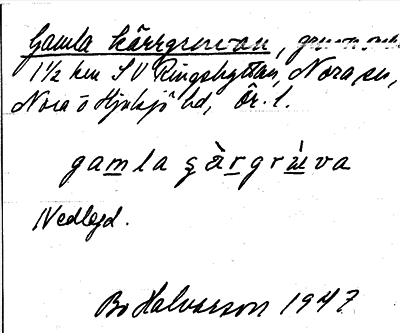 Gamla kärrgruvan,
1 1/2 km SV Ringshyttan, Nora sn,
Nora o Hjulsjö bd, Ör. l.
gamla şàrgrùva
Nedlagd.
Bo Halvarson 1947